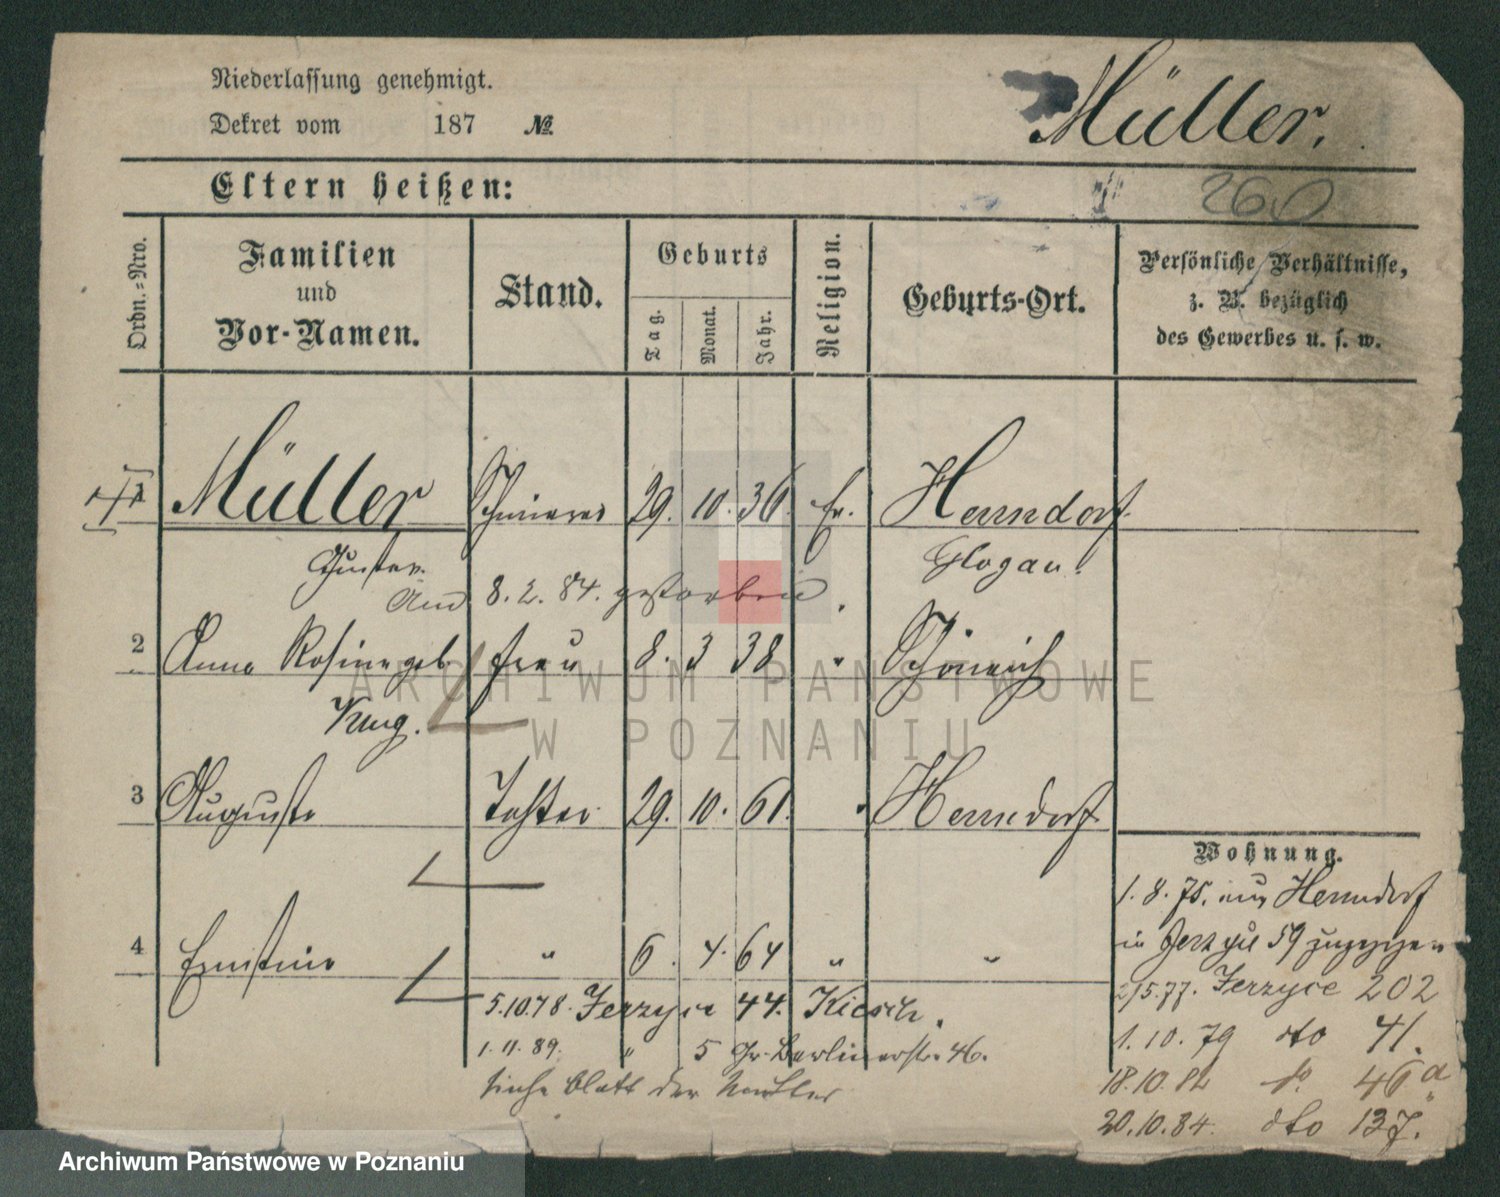 Niederlassung genehmigt.
Dekret vom 187 №
Müller.
Eltern heißen:
260
Ordn.=Nro.
Familien
und
Vor-Namen.
Stand.
Geburts
Tag.
Monat.
Jahr.
Religion.
Geburts-Ort.
Persönliche Verhältnisse,
z. B. bezüglich
des Gewerbes u. s. w.
1 Müller 29. 10. 36. Ev. Herrndorf
Gustav. Glogau.
Am 8. 2. 84. gestorben.
2 Anna Rosine geb. Frau 8. 3 38 "
Krug.
3 Auguste Tochter 29. 10. 61. " Herrndorf
4 Ernstine " 6. 4. 64 " "
5.10.78. Jerzyce 44. Kiesch.
1. 11. 89. " 5 Gr. Berlinerstr. 46.
siehe Blatt der Mutter
Wohnung.
1. 8. 75. aus Herrndorf
in Jerzyce 59 zugezogen
2/5.77. Jerzyce 202
1. 10. 79 dto 41.
18.10.82 do. 46a
20.10.84. dto 137.
ARCHIWUM PAŃSTWOWE
W POZNANIU
Archiwum Państwowe w Poznaniu